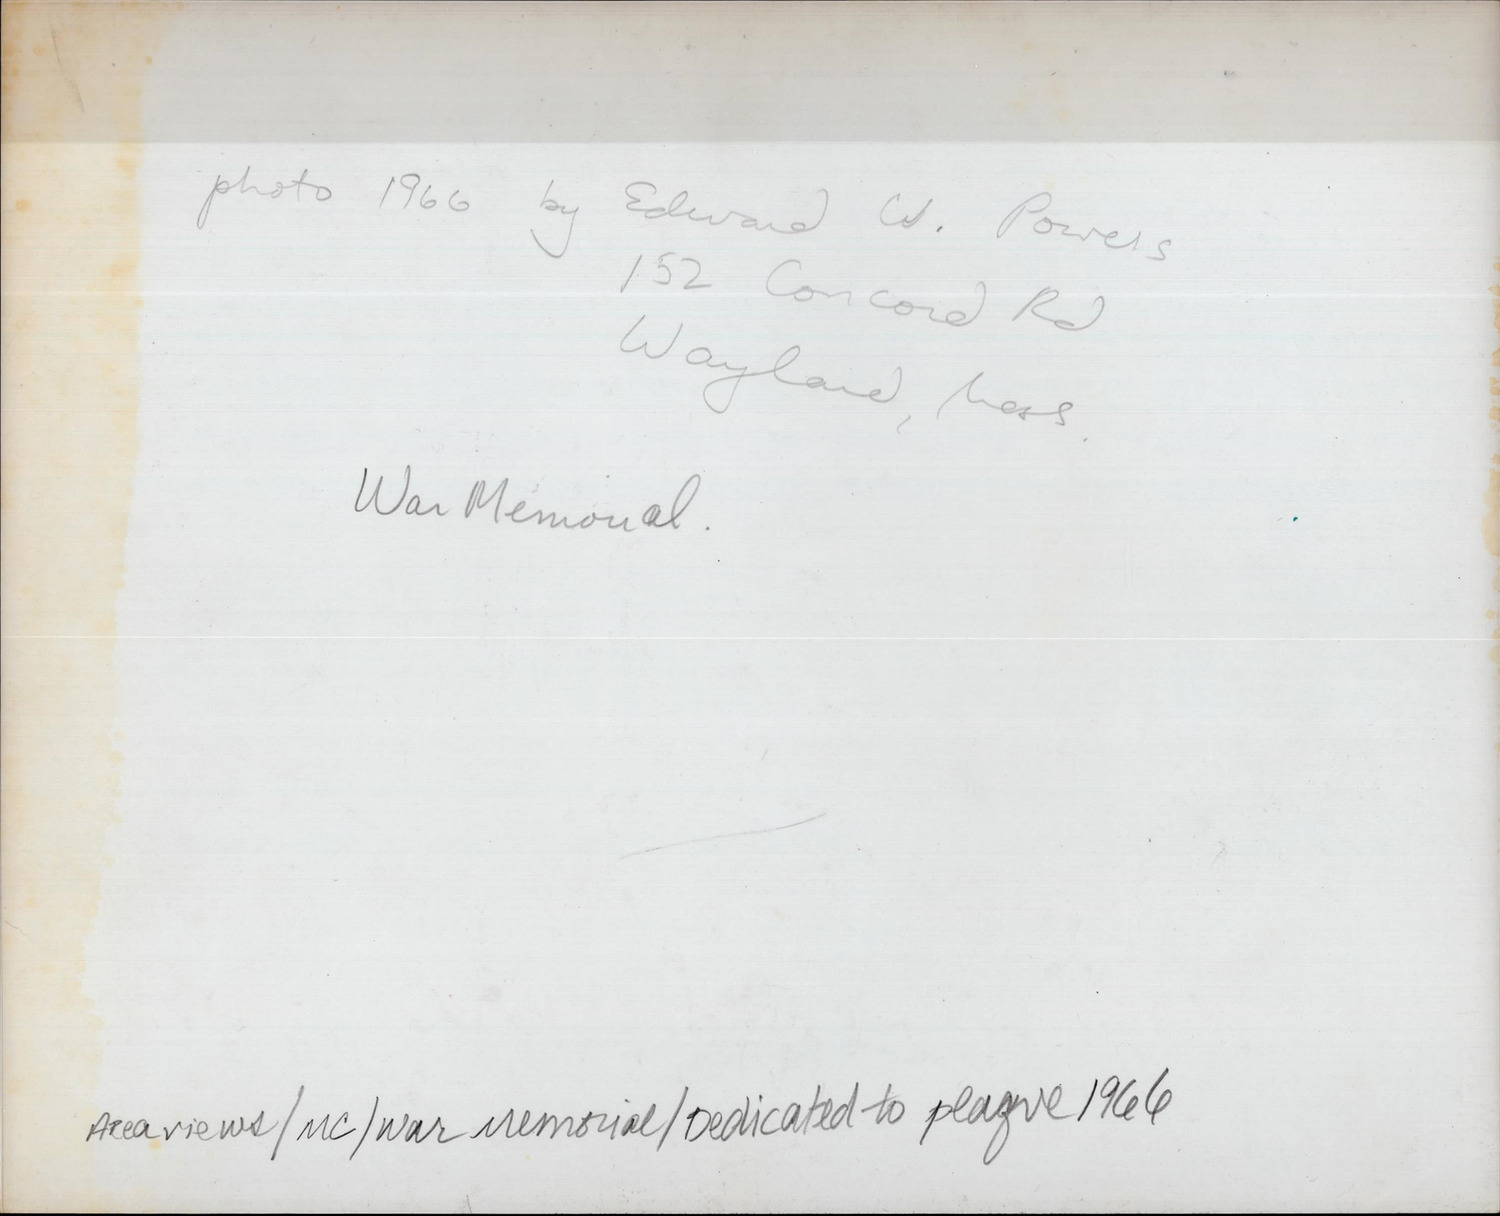 photo 1966 by Edward W. Powers
152 Concord Rd
Wayland, Mass.
War Memorial.
Area views/MC/War Memorial/Dedicated to plaqve 1966